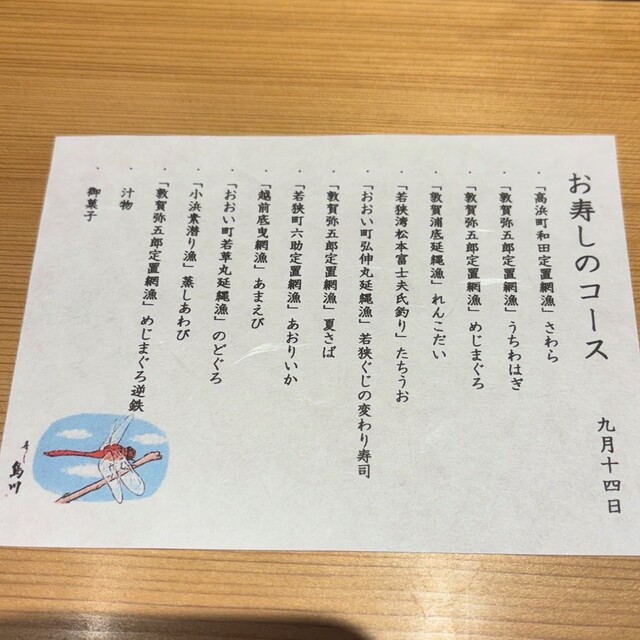 お寿しのコース
九月十四日
・「高浜町和田定置網漁」さわら
・「敦賀弥五郎定置網漁」うちわはぎ
・「敦賀弥五郎定置網漁」めじまぐろ
・「敦賀浦底延縄漁」れんこだい
・「若狭湾松本富士夫氏釣り」たちうお
・「おおい町弘伸丸延縄漁」若狭ぐじの変わり寿司
・「敦賀弥五郎定置網漁」夏さば
・「若狭町六助定置網漁」あおりいか
・「越前底曳網漁」あまえび
・「おおい町若草丸延縄漁」のどぐろ
・「小浜素潜り漁」蒸しあわび
・「敦賀弥五郎定置網漁」めじまぐろ逆鉄
・汁物
・御菓子